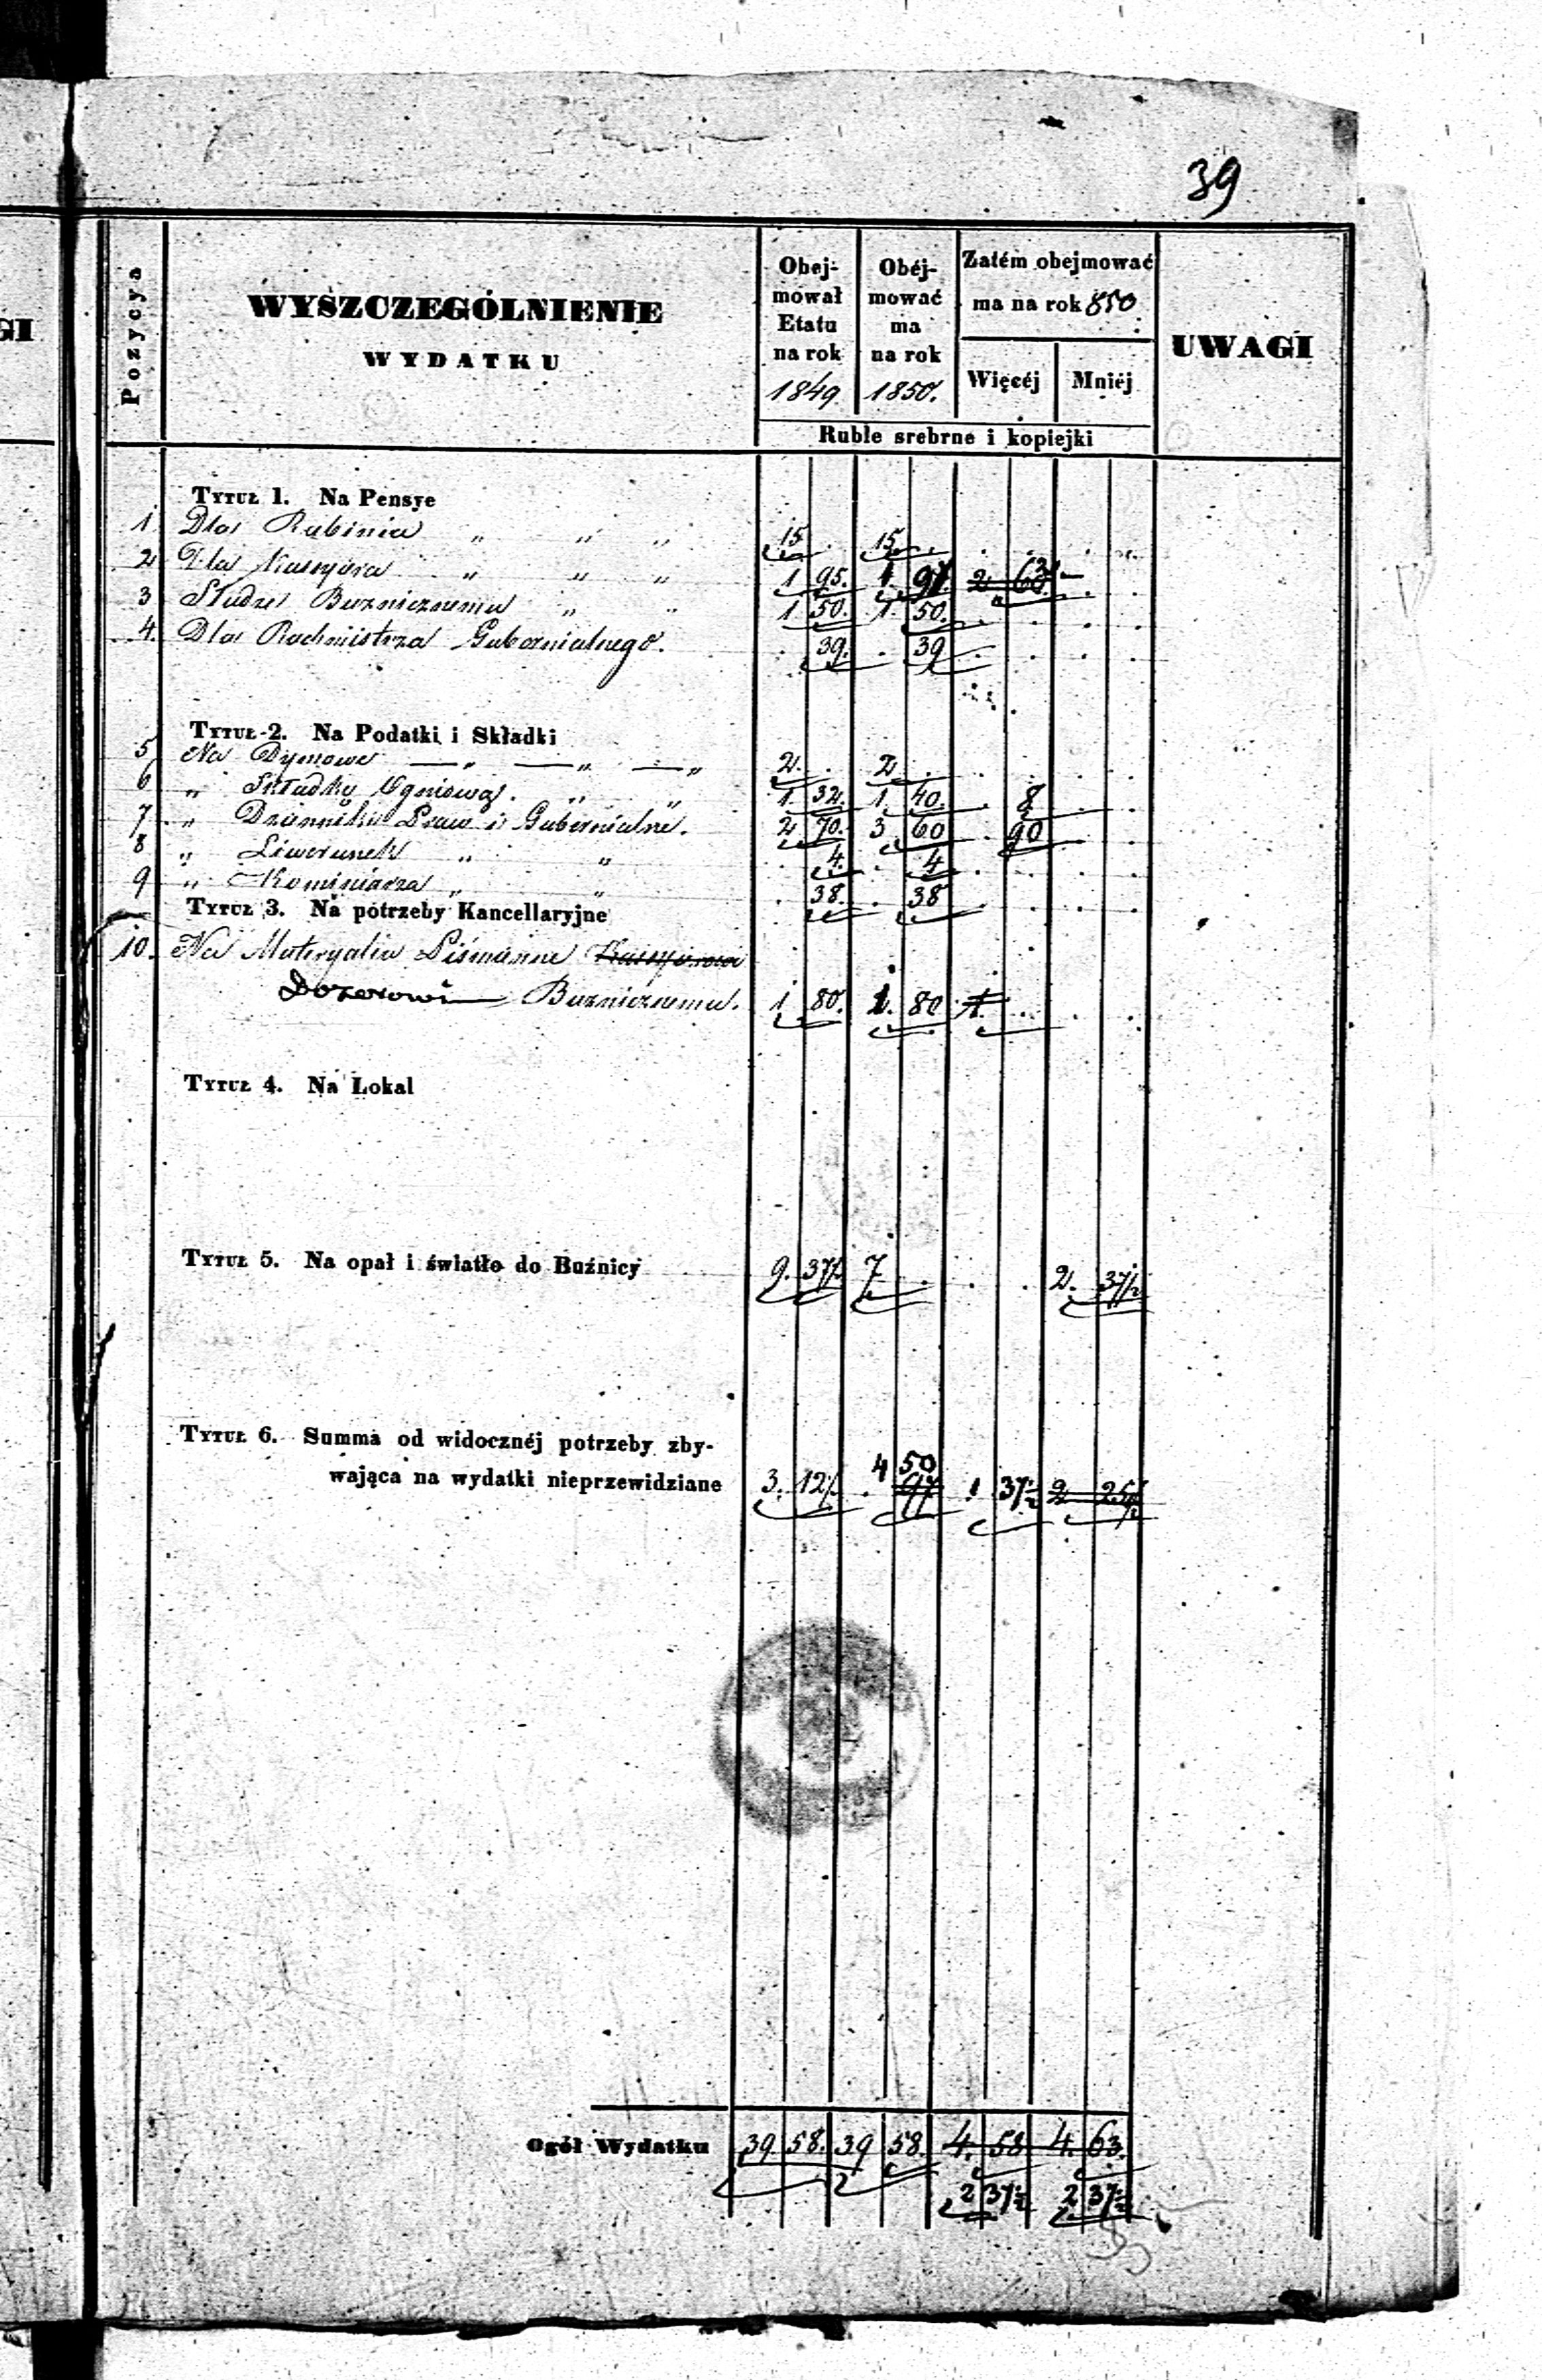 39
GI
Pozycya
WYSZCZEGÓLNIENIE
WYDATKU
Obej-
mował
Etatu
na rok
1849
Obéj-
mować
ma
na rok
1850.
Zatém obejmować
ma na rok 850
Więcéj
Mniéj
UWAGI
Ruble srebrne i kopiejki
Tytuł 1. Na Pensye
1 Dla Rabinia „ „ „ 15 . 15 .
2 Dla Kassyera „ „ „ 1 95. 1. 97
3 Słudze Bużnicznemu „ „ 1 50. 1. 50.
4. Dla Rachmistrza Gubernialnego. . 39. . 39
Tytuł 2. Na Podatki i Składki
5 Na Dymowe — „ — „ — „ 2. . 2 .
6 „ Składkę Ogniową. „ „ 1. 32. 1. 40. . 8
7 „ Dzienniki Praw i Gubernialne. 2 70. 3 60 . 90
8 „ Liwerunek „ „ . 4. . 4
9 „ Kominiarza „ „ . 38. . 38
Tytuł 3. Na potrzeby Kancellaryjne
10. Na Materyalia Piśmienne Kassyerowi
Dozorowi Bużnicznemu. 1 80. 1. 80 1.
Tytuł 4. Na Lokal
Tytuł 5. Na opał i światło do Buźnicy 9. 37½ 7 . . . 2. 37½
Tytuł 6. Summa od widocznéj potrzeby zby-
4 50
wająca na wydatki nieprzewidziane 3. 12½ . 97 1 37½ 2 25½
Ogół Wydatku 39 58. 39 58. 4. 58 4. 63.
2 37½ 2 37½